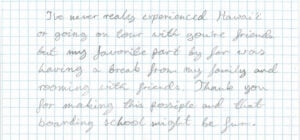 I've never really experienced Hawai'i
or going on tour with you're friends
but my favorite part by far was
having a break from my family and
rooming with friends. Thank you
for making this posiple and that
boarding school might be fun.